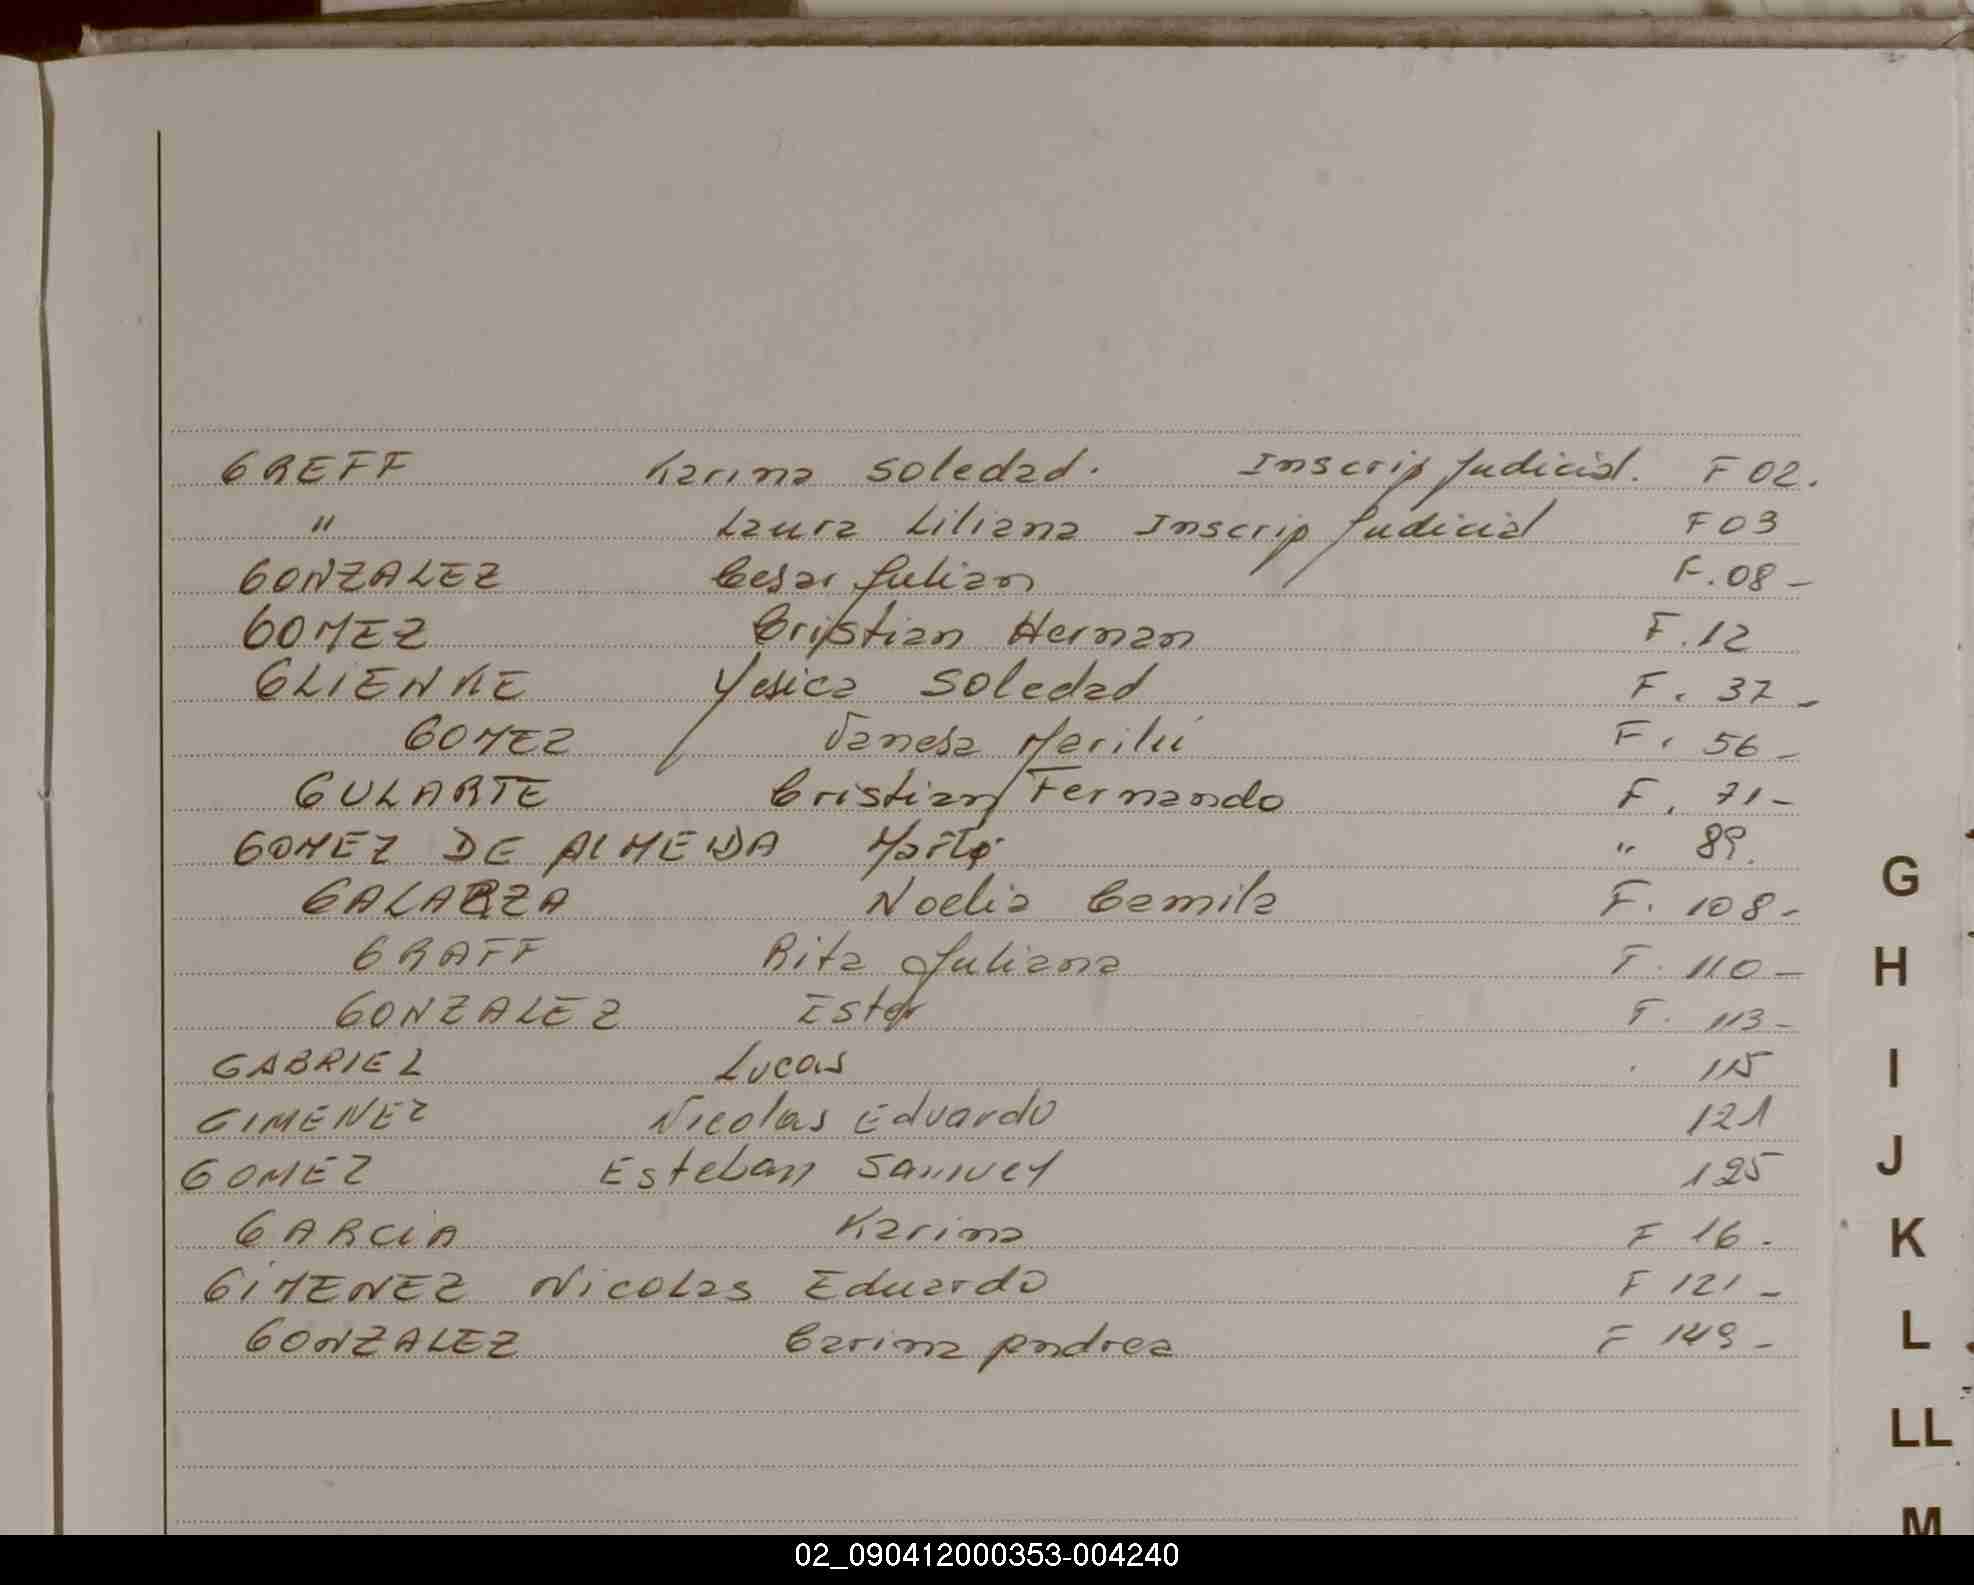 GREFF Karina Soledad. Inscrip Judicial. F 02.
" Laura Liliana Inscrip Judicial F 03
GONZALEZ Cesar Julian F. 08 -
GOMEZ Cristian Hernan F. 12
GLIENKE Yesica Soledad F. 37 -
GOMEZ Vanesa Marilú F. 56 -
GULARTE Cristian Fernando F. 71 -
GOMEZ DE ALMEIDA " 89.
GALARZA Noelia Camila F. 108 -
GRAFF Rita Juliana F. 110 -
GONZALEZ Ester F. 113 -
GABRIEL Lucas 115
GIMENEZ Nicolas Eduardo 121
GOMEZ Esteban Samuel 125
GARCIA Karina F 16 -
GIMENEZ Nicolas Eduardo F 121 -
GONZALEZ Carina Andrea F 149 -
G
H
I
J
K
L
LL
M
02_090412000353-004240